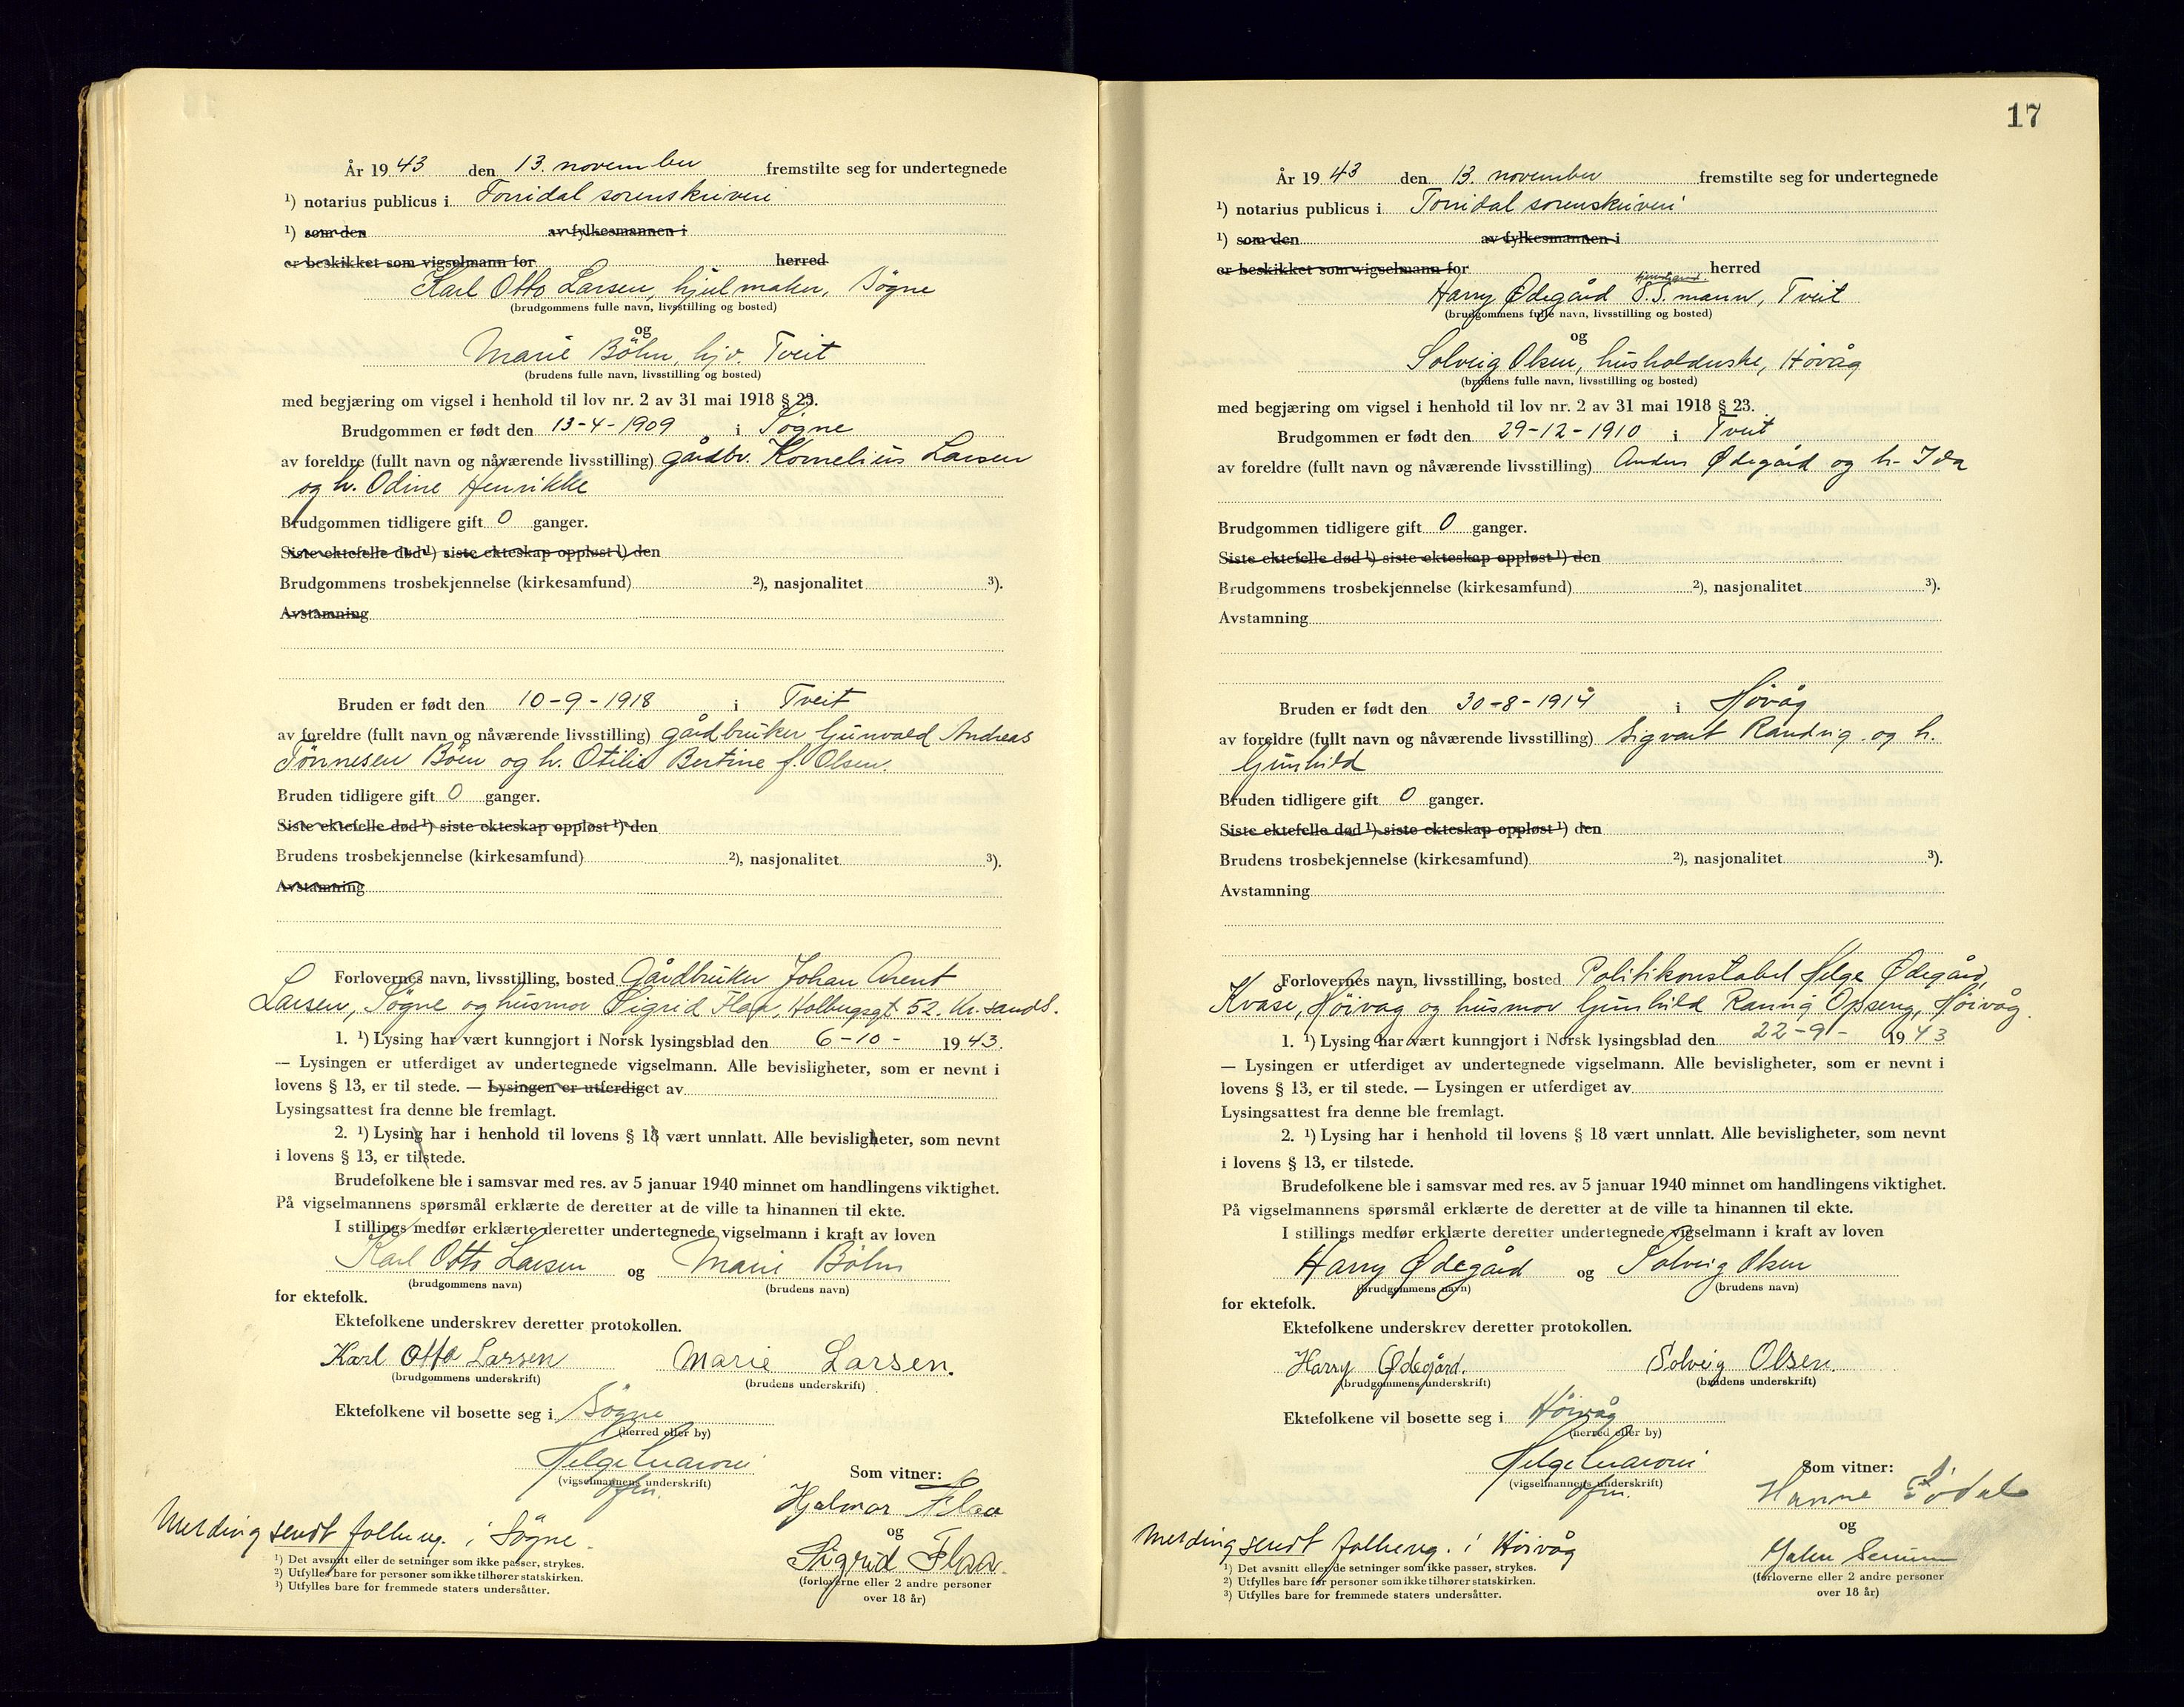 År 1943 den 13. november fremstilte seg for undertegnede
¹) notarius publicus i Torridal sorenskriveri
¹) som den av fylkesmannen i
er beskikket som vigselmann for herred
Karl Otto Larsen, hjulmaker, Søgne
(brudgommens fulle navn, livsstilling og bosted)
og
Marie Böhn, hjv. Tveit
(brudens fulle navn, livsstilling og bosted)
med begjæring om vigsel i henhold til lov nr. 2 av 31 mai 1918 § 23.
Brudgommen er født den 13-4-1909 i Søgne
av foreldre (fullt navn og nåværende livsstilling) gårdbr. Kornelius Larsen
og h. Odine Henrikke
Brudgommen tidligere gift 0 ganger.
Siste ektefelle død ¹) siste ekteskap oppløst ¹) den
Brudgommens trosbekjennelse (kirkesamfund) ²), nasjonalitet ³).
Avstamning
Bruden er født den 10-9-1918 i Tveit
av foreldre (fullt navn og nåværende livsstilling) gårdbruker Gunvald Andreas
Tönnesen Böen og h. Otilie Bertine f. Olsen.
Bruden tidligere gift 0 ganger.
Siste ektefelle død ¹) siste ekteskap oppløst ¹) den
Brudens trosbekjennelse (kirkesamfund) ²), nasjonalitet ³).
Avstamning
Forlovernes navn, livsstilling, bosted Gårdbruker Johan Arent
Larsen, Søgne og husmor Sigrid Flaa, Holbergsgt 52. Kr.sand S.
1. ¹) Lysing har vært kunngjort i Norsk lysingsblad den 6-10- 1943.
— Lysingen er utferdiget av undertegnede vigselmann. Alle bevisligheter, som er nevnt i
lovens § 13, er til stede. — Lysingen er utferdiget av
Lysingsattest fra denne ble fremlagt.
2. ¹) Lysing har i henhold til lovens § 18 vært unnlatt. Alle bevisligheter, som nevnt
i lovens § 13, er tilstede.
Brudefolkene ble i samsvar med res. av 5 januar 1940 minnet om handlingens viktighet.
På vigselmannens spørsmål erklærte de deretter at de ville ta hinannen til ekte.
I stillings medfør erklærte deretter undertegnede vigselmann i kraft av loven
Karl Otto Larsen og Marie Böhn
(brudgommens navn) (brudens navn)
for ektefolk.
Ektefolkene underskrev deretter protokollen.
Karl Otto Larsen Marie Larsen.
(brudgommens underskrift) (brudens underskrift)
Ektefolkene vil bosette seg i Søgne
(herred eller by)
Helge
(vigselmannens underskrift)
Som vitner:
Hjalmar Flaa
og
Sigrid Flaa.
(forloverne eller 2 andre personer
over 18 år)
Melding sendt folkereg. i Søgne.
¹) Det avsnitt eller de setninger som ikke passer, strykes.
²) Utfylles bare for personer som ikke tilhører statskirken.
³) Utfylles bare for fremmede staters undersåtter.
17
År 1943 den 13. november fremstilte seg for undertegnede
¹) notarius publicus i Torridal sorenskriveri
¹) som den av fylkesmannen i
er beskikket som vigselmann for herred
Harry Ødegård S.S. mann, Tveit
(brudgommens fulle navn, livsstilling og bosted)
og
Solveig Olsen, husholderske, Høvåg
(brudens fulle navn, livsstilling og bosted)
med begjæring om vigsel i henhold til lov nr. 2 av 31 mai 1918 § 23.
Brudgommen er født den 29-12-1910 i Tveit
av foreldre (fullt navn og nåværende livsstilling) Anders Ødegård og h. Ida
Brudgommen tidligere gift 0 ganger.
Siste ektefelle død ¹) siste ekteskap oppløst ¹) den
Brudgommens trosbekjennelse (kirkesamfund) ²), nasjonalitet ³).
Avstamning
Bruden er født den 30-8-1914 i Høvåg
av foreldre (fullt navn og nåværende livsstilling) Sigvart og h.
Gunhild
Bruden tidligere gift 0 ganger.
Siste ektefelle død ¹) siste ekteskap oppløst ¹) den
Brudens trosbekjennelse (kirkesamfund) ²), nasjonalitet ³).
Avstamning
Forlovernes navn, livsstilling, bosted Politikonstabel Helge Ødegård,
Kvåse, Høivåg og husmor Gunhild Opseng, Høivåg.
1. ¹) Lysing har vært kunngjort i Norsk lysingsblad den 22-9- 1943
— Lysingen er utferdiget av undertegnede vigselmann. Alle bevisligheter, som er nevnt i
lovens § 13, er til stede. — Lysingen er utferdiget av
Lysingsattest fra denne ble fremlagt.
2. ¹) Lysing har i henhold til lovens § 18 vært unnlatt. Alle bevisligheter, som nevnt
i lovens § 13, er tilstede.
Brudefolkene ble i samsvar med res. av 5 januar 1940 minnet om handlingens viktighet.
På vigselmannens spørsmål erklærte de deretter at de ville ta hinannen til ekte.
I stillings medfør erklærte deretter undertegnede vigselmann i kraft av loven
Harry Ødegård og Solveig Olsen
(brudgommens navn) (brudens navn)
for ektefolk.
Ektefolkene underskrev deretter protokollen.
Harry Ødegård. Solveig Olsen.
(brudgommens underskrift) (brudens underskrift)
Ektefolkene vil bosette seg i Høivåg
(herred eller by)
Helge
(vigselmannens underskrift)
Som vitner:
Hanne
og
(forloverne eller 2 andre personer
over 18 år)
Melding sendt folkereg. i Høivåg
¹) Det avsnitt eller de setninger som ikke passer, strykes.
²) Utfylles bare for personer som ikke tilhører statskirken.
³) Utfylles bare for fremmede staters undersåtter.